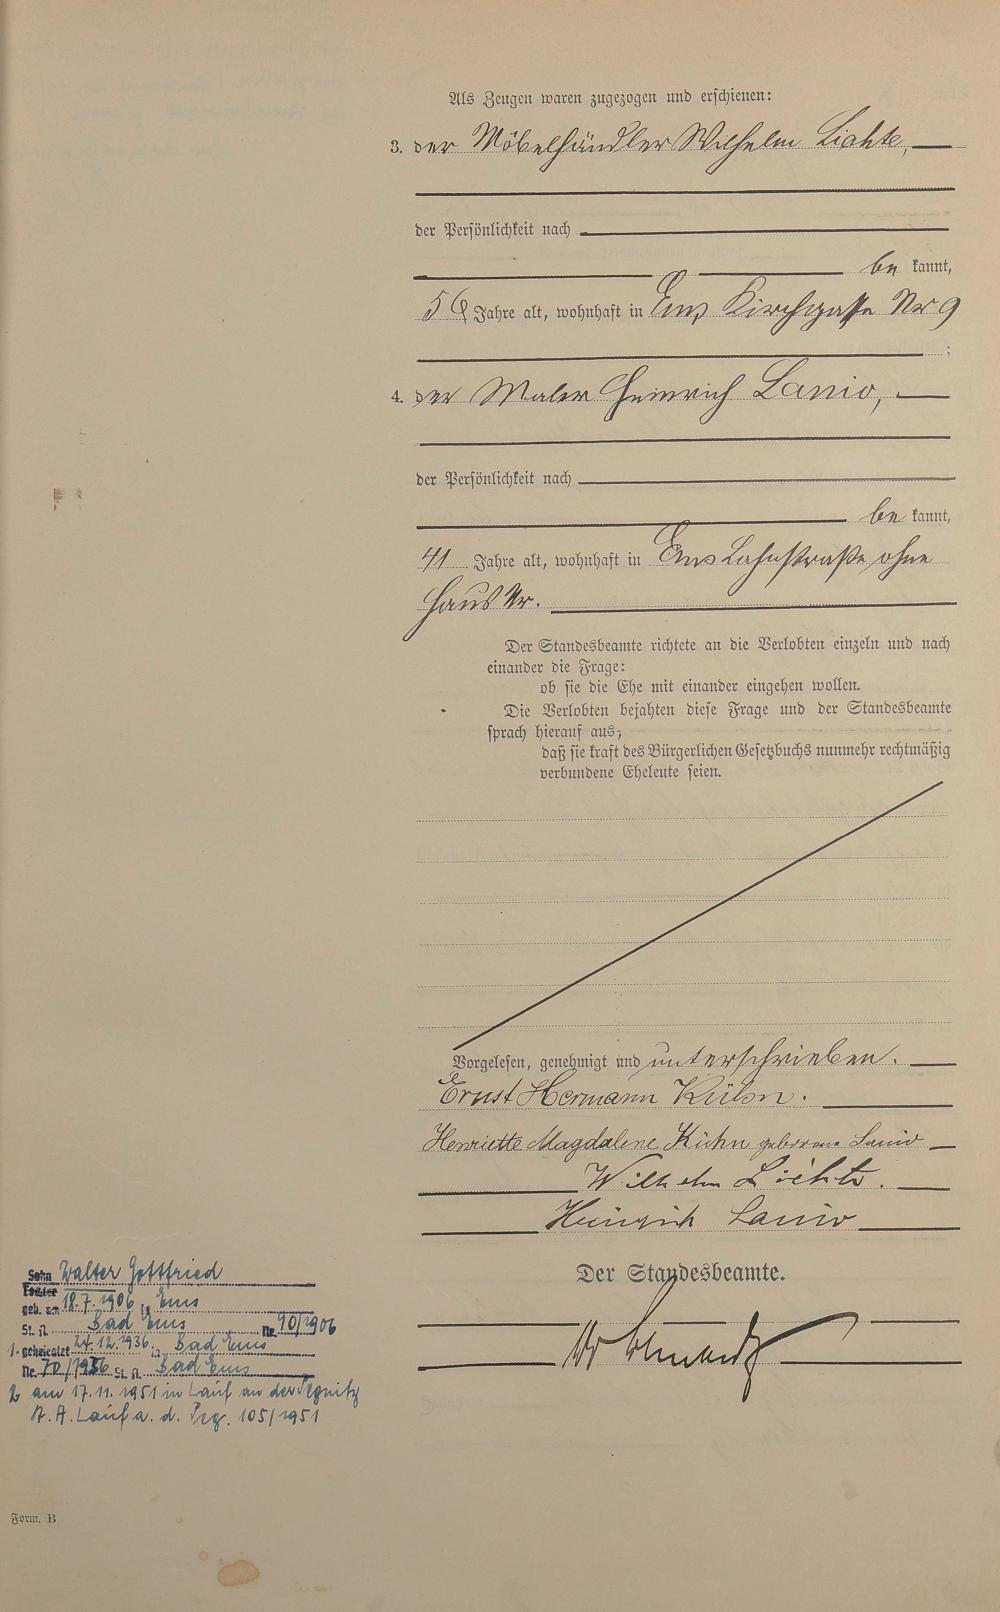 Als Zeugen waren zugezogen und erschienen:
3. der Möbelhändler Wilhelm Lichte,
der Persönlichkeit nach
be kannt,
56 Jahre alt, wohnhaft in Ems Kirchgasse Nr 9
;
4. der Maler Heinrich Lanio,
der Persönlichkeit nach
be kannt,
41 Jahre alt, wohnhaft in Ems Lahnstraße ohne
Haus Nr.
Der Standesbeamte richtete an die Verlobten einzeln und nach
einander die Frage:
ob sie die Ehe mit einander eingehen wollen.
Die Verlobten bejahten diese Frage und der Standesbeamte
sprach hierauf aus,
daß sie kraft des Bürgerlichen Gesetzbuchs nunmehr rechtmäßig
verbundene Eheleute seien.
Vorgelesen, genehmigt und unterschrieben.
Ernst Hermann Kühn.
Henriette Magdalene Kühn geborene Lanio
Wilhelm Lichte.
Heinrich Lanio
Der Standesbeamte.
Sohn Walter Gottfried
Tochter
geb. am 18.7.1906 in Ems
St. A. Bad Ems Nr. 90/1906
1. geheiratet 24.12.1936 in Bad Ems
Nr. 70/1936 St. A. Bad Ems
2 am 17.11.1951 in Lauf an der Pegnitz
St. A. Lauf a. d. Peg. 105/1951
Form. B